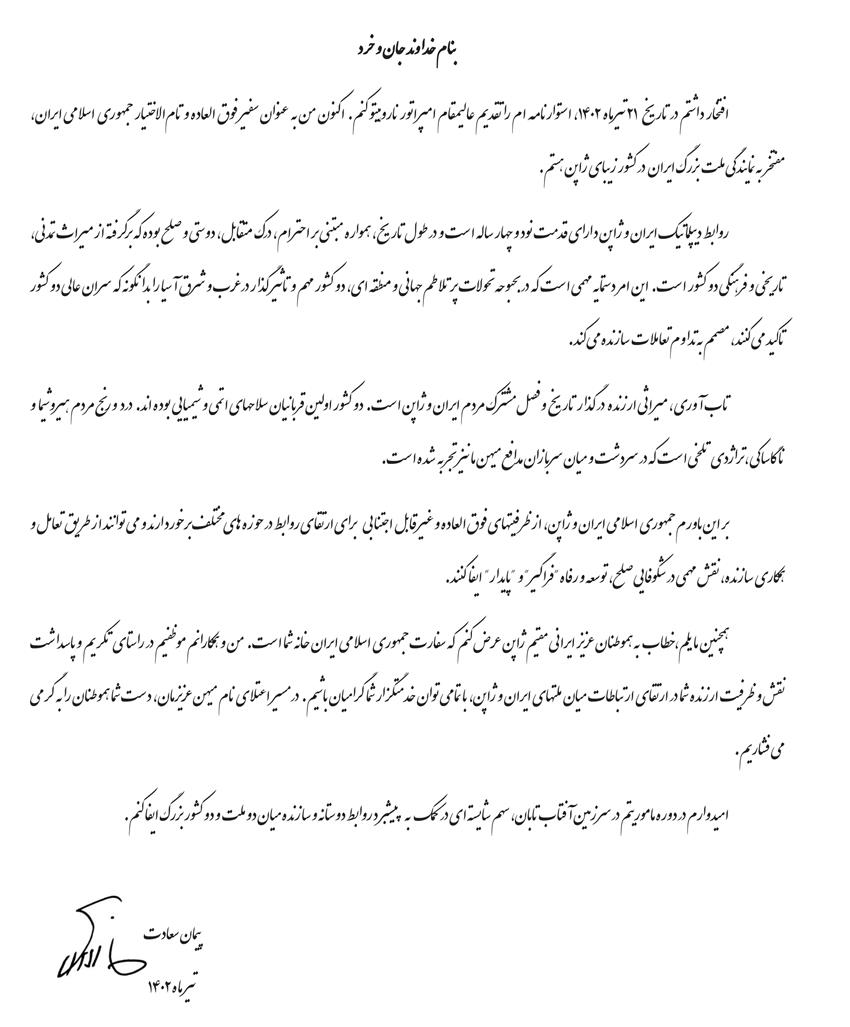 بنام خداوند جان و خرد
افتخار داشتم در تاریخ ۲۱ تیرماه ۱۴۰۲، استوارنامه ام را تقدیم عالیمقام امپراتور ناروهیتو کنم. اکنون من به عنوان سفیر فوق العاده و تام الاختیار جمهوری اسلامی ایران،
مفتخر به نمایندگی ملت بزرگ ایران در کشور زیبای ژاپن هستم.
روابط دیپلماتیک ایران و ژاپن دارای قدمت نود و چهار ساله است و در طول تاریخ، همواره مبتنی بر احترام، درک متقابل، دوستی و صلح بوده که برگرفته از میراث تمدنی،
تاریخی و فرهنگی دو کشور است. این امر دستمایه مهمی است که در بحبوحه تحولات پر تلاطم جهانی و منطقه ای، دو کشور مهم و تاثیرگذار در غرب و شرق آسیا را بدانگونه که سران عالی دو کشور
تاکید می کنند، مصمم به تداوم تعاملات سازنده می کند.
تاب آوری، میراثی ارزنده در گذار تاریخ و فصل مشترک مردم ایران و ژاپن است. دو کشور اولین قربانیان سلاحهای اتمی و شیمیایی بوده اند. درد و رنج مردم هیروشیما و
ناکاساکی، تراژدی تلخی است که در سردشت و میان سربازان مدافع میهن ما نیز تجربه شده است.
بر این باورم جمهوری اسلامی ایران و ژاپن، از ظرفیتهای فوق العاده و غیرقابل اجتنابی برای ارتقای روابط در حوزه های مختلف برخوردارند و می توانند از طریق تعامل و
همکاری سازنده، نقش مهمی در شکوفایی صلح، توسعه و رفاه "فراگیر" و "پایدار" ایفا کنند.
همچنین مایلم، خطاب به هموطنان عزیز ایرانی مقیم ژاپن عرض کنم که سفارت جمهوری اسلامی ایران خانه شما است. من و همکارانم موظفیم در راستای تکریم و پاسداشت
نقش و ظرفیت ارزنده شما در ارتقای ارتباطات میان ملتهای ایران و ژاپن، با تمامی توان خدمتگزار شما گرامیان باشیم. در مسیر اعتلای نام میهن عزیزمان، دست شما هموطنان را به گرمی
می فشاریم.
امیدوارم در دوره ماموریتم در سرزمین آفتاب تابان، سهم شایسته ای در کمک به پیشبرد روابط دوستانه و سازنده میان دو ملت و دو کشور بزرگ ایفا کنم.
پیمان سعادت
تیرماه ۱۴۰۲